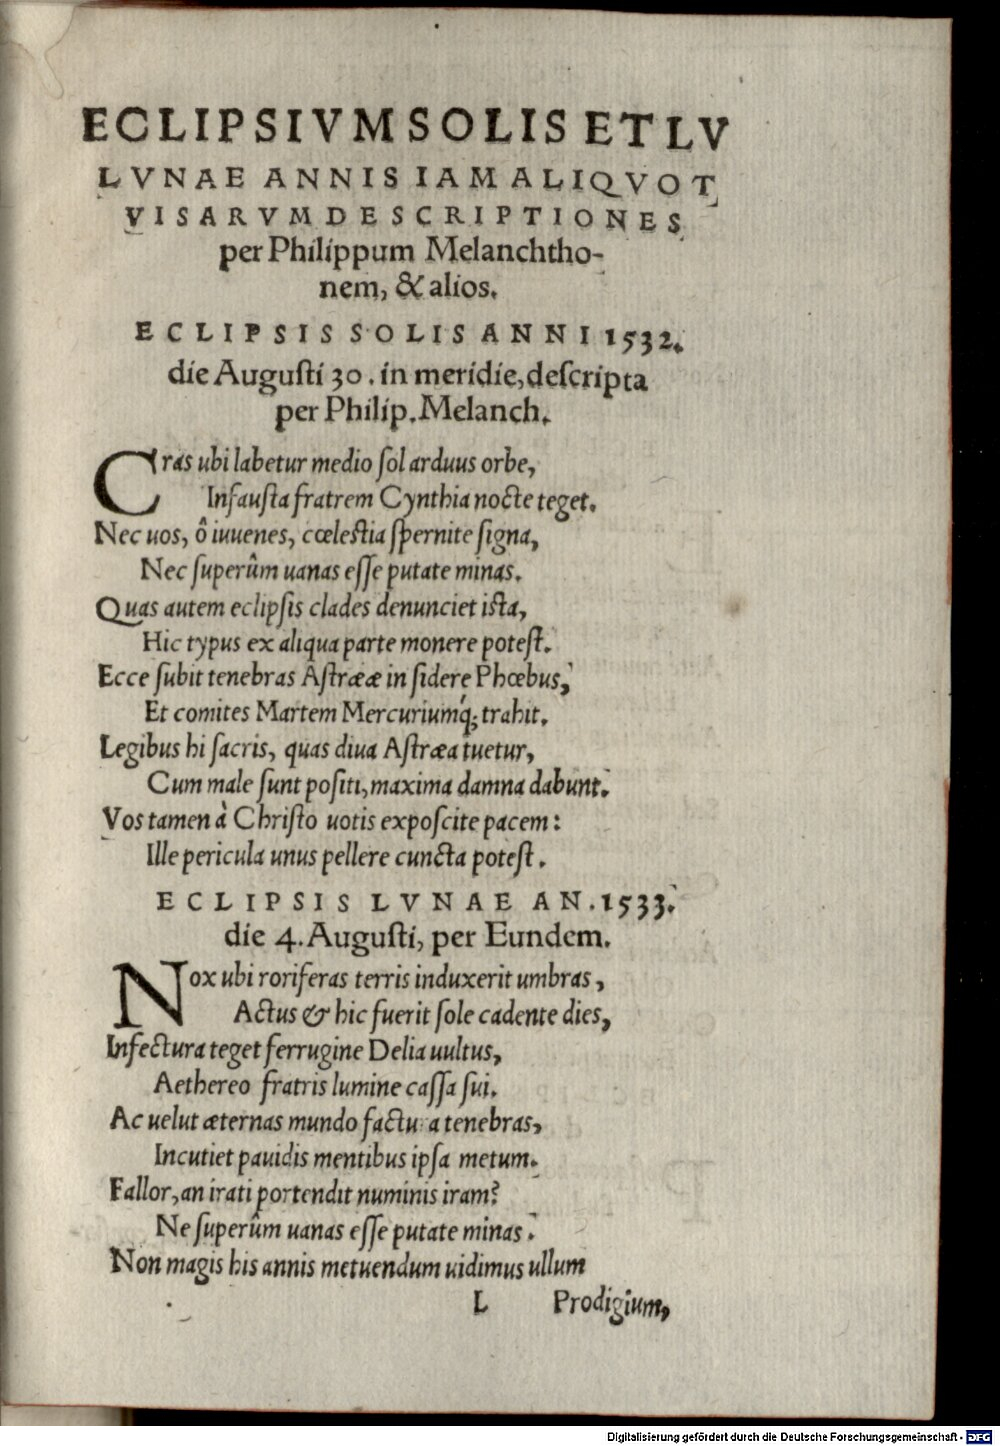 ECLIPSIVM SOLIS ET LV
LVNAE ANNIS IAM ALIQVOT
VISARVM DESCRIPTIONES
per Philippum Melanchtho-
nem, & alios.
ECLIPSIS SOLIS ANNI 1532.
die Auguſti 30. in meridie, deſcripta
per Philip. Melanch.
Cras ubi labetur medio ſol arduus orbe,
Infauſta fratrem Cynthia nocte teget.
Nec uos, ô iuuenes, cœleſtia ſpernite ſigna,
Nec ſuperûm uanas eſſe putate minas.
Quas autem eclipſis clades denunciet iſta,
Hic typus ex aliqua parte monere poteſt.
Ecce ſubit tenebras Aſtrææ in ſidere Phœbus,
Et comites Martem Mercuriumq́; trahit.
Legibus hi ſacris, quas diua Aſtræa tuetur,
Cum male ſunt poſiti, maxima damna dabunt.
Vos tamen à Chriſto uotis expoſcite pacem:
Ille pericula unus pellere cuncta poteſt.
ECLIPSIS LVNAE AN. 1533.
die 4. Auguſti, per Eundem.
Nox ubi roriferas terris induxerit umbras,
Actus & hic fuerit ſole cadente dies,
Infectura teget ferrugine Delia uultus,
Aethereo fratris lumine caſſa ſui.
Ac uelut æternas mundo factu a tenebras,
Incutiet pauidis mentibus ipſa metum.
Fallor, an irati portendit numinis iram?
Ne ſuperûm uanas eſſe putate minas.
Non magis his annis metuendum uidimus ullum
L Prodigium,
Digitalisierung gefördert durch die Deutsche Forschungsgemeinschaft - DFG